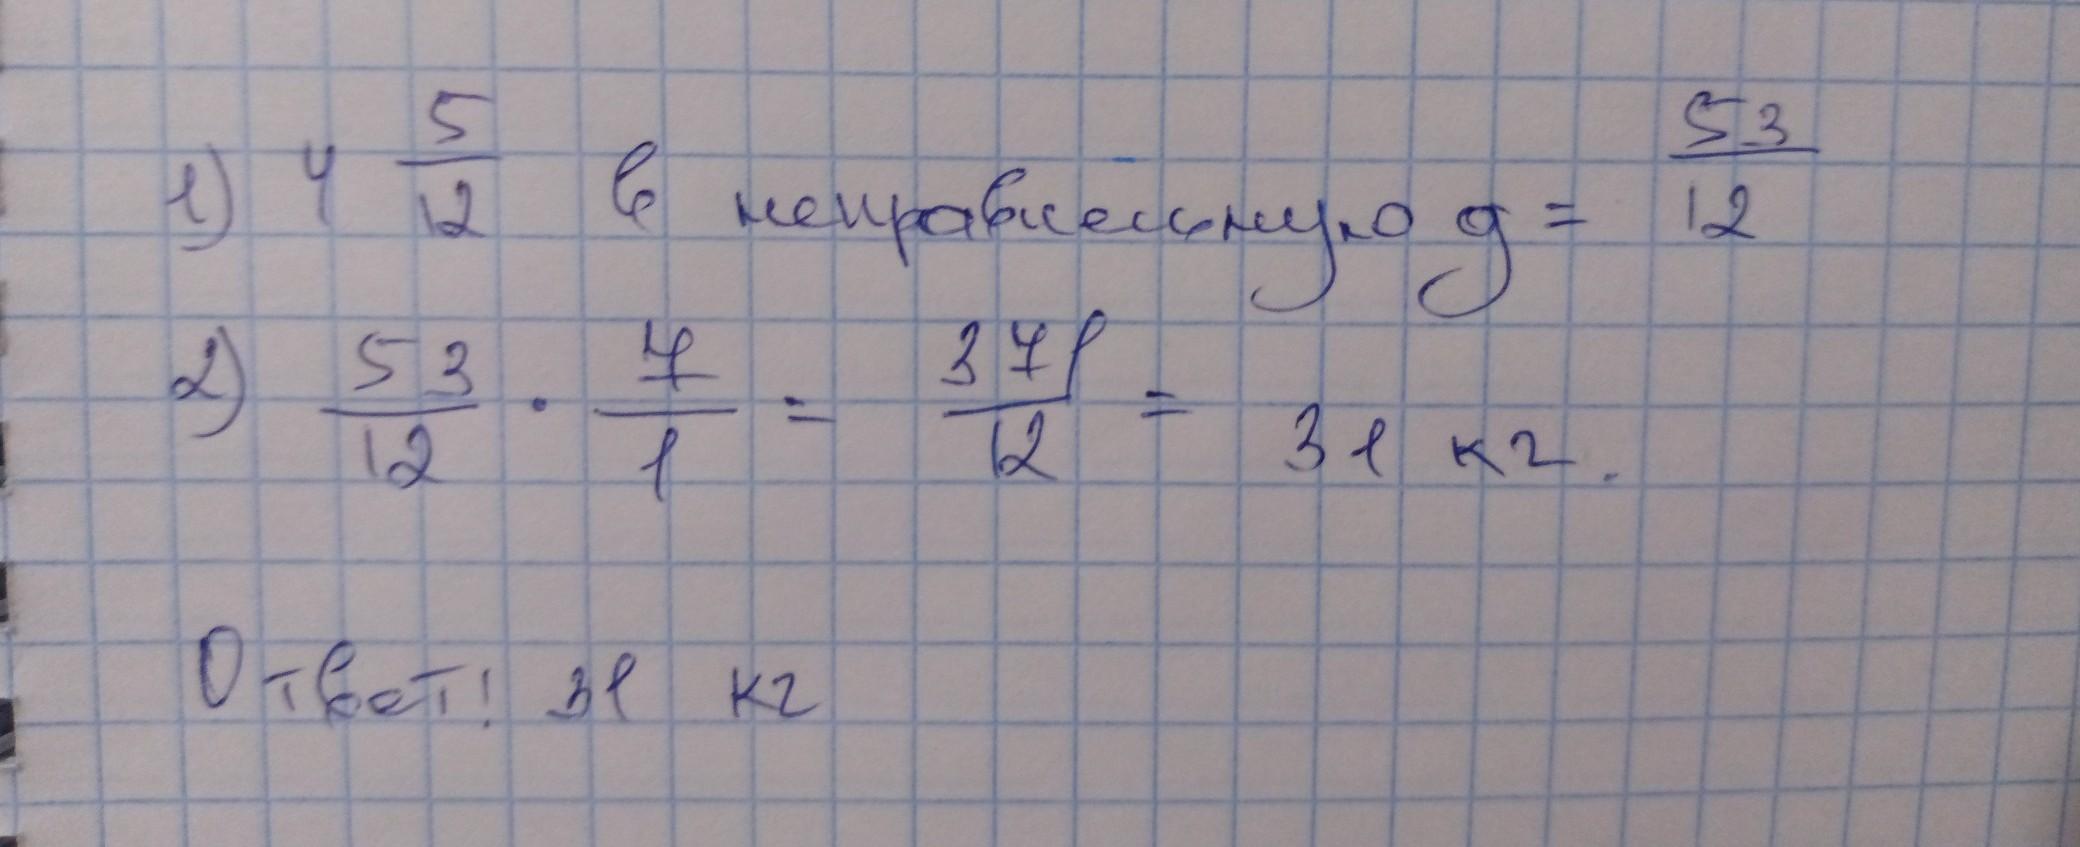 1) 4 5/12 в неправильную д = 53/12
2) 53/12 · 7/1 = 371/12 = 31 кг.
Ответ! 31 кг